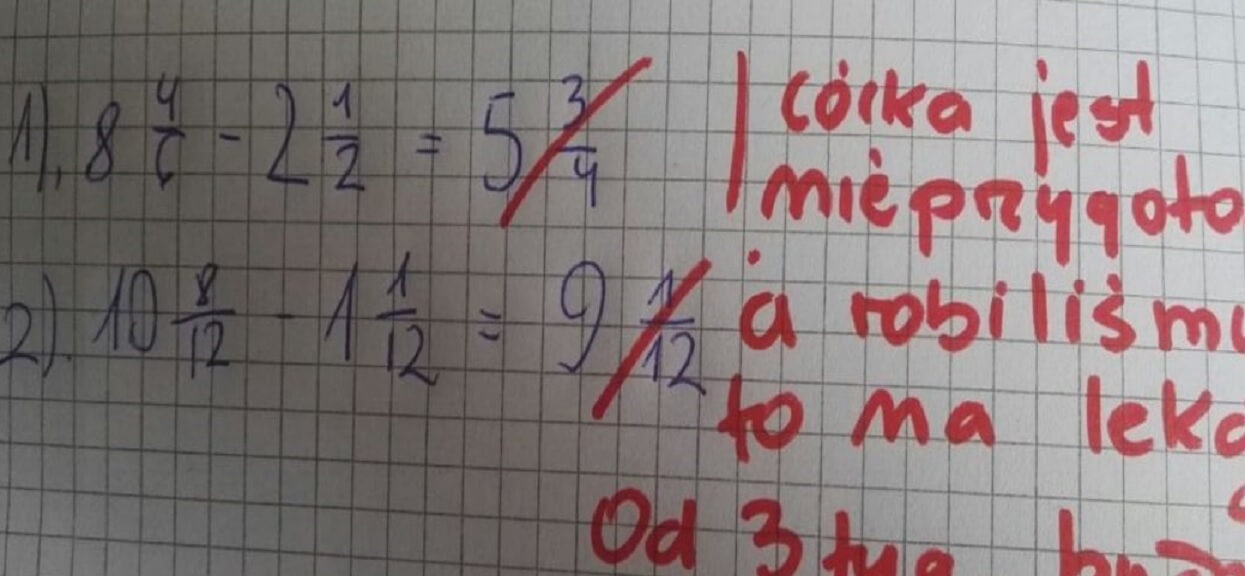 1). 8 4/6 - 2 1/2 = 5 3/4
2). 10 8/12 - 1 1/12 = 9 1/12
córka jest
nieprzygoto
a robiliśmy
to ma leka
Od 3 tyg